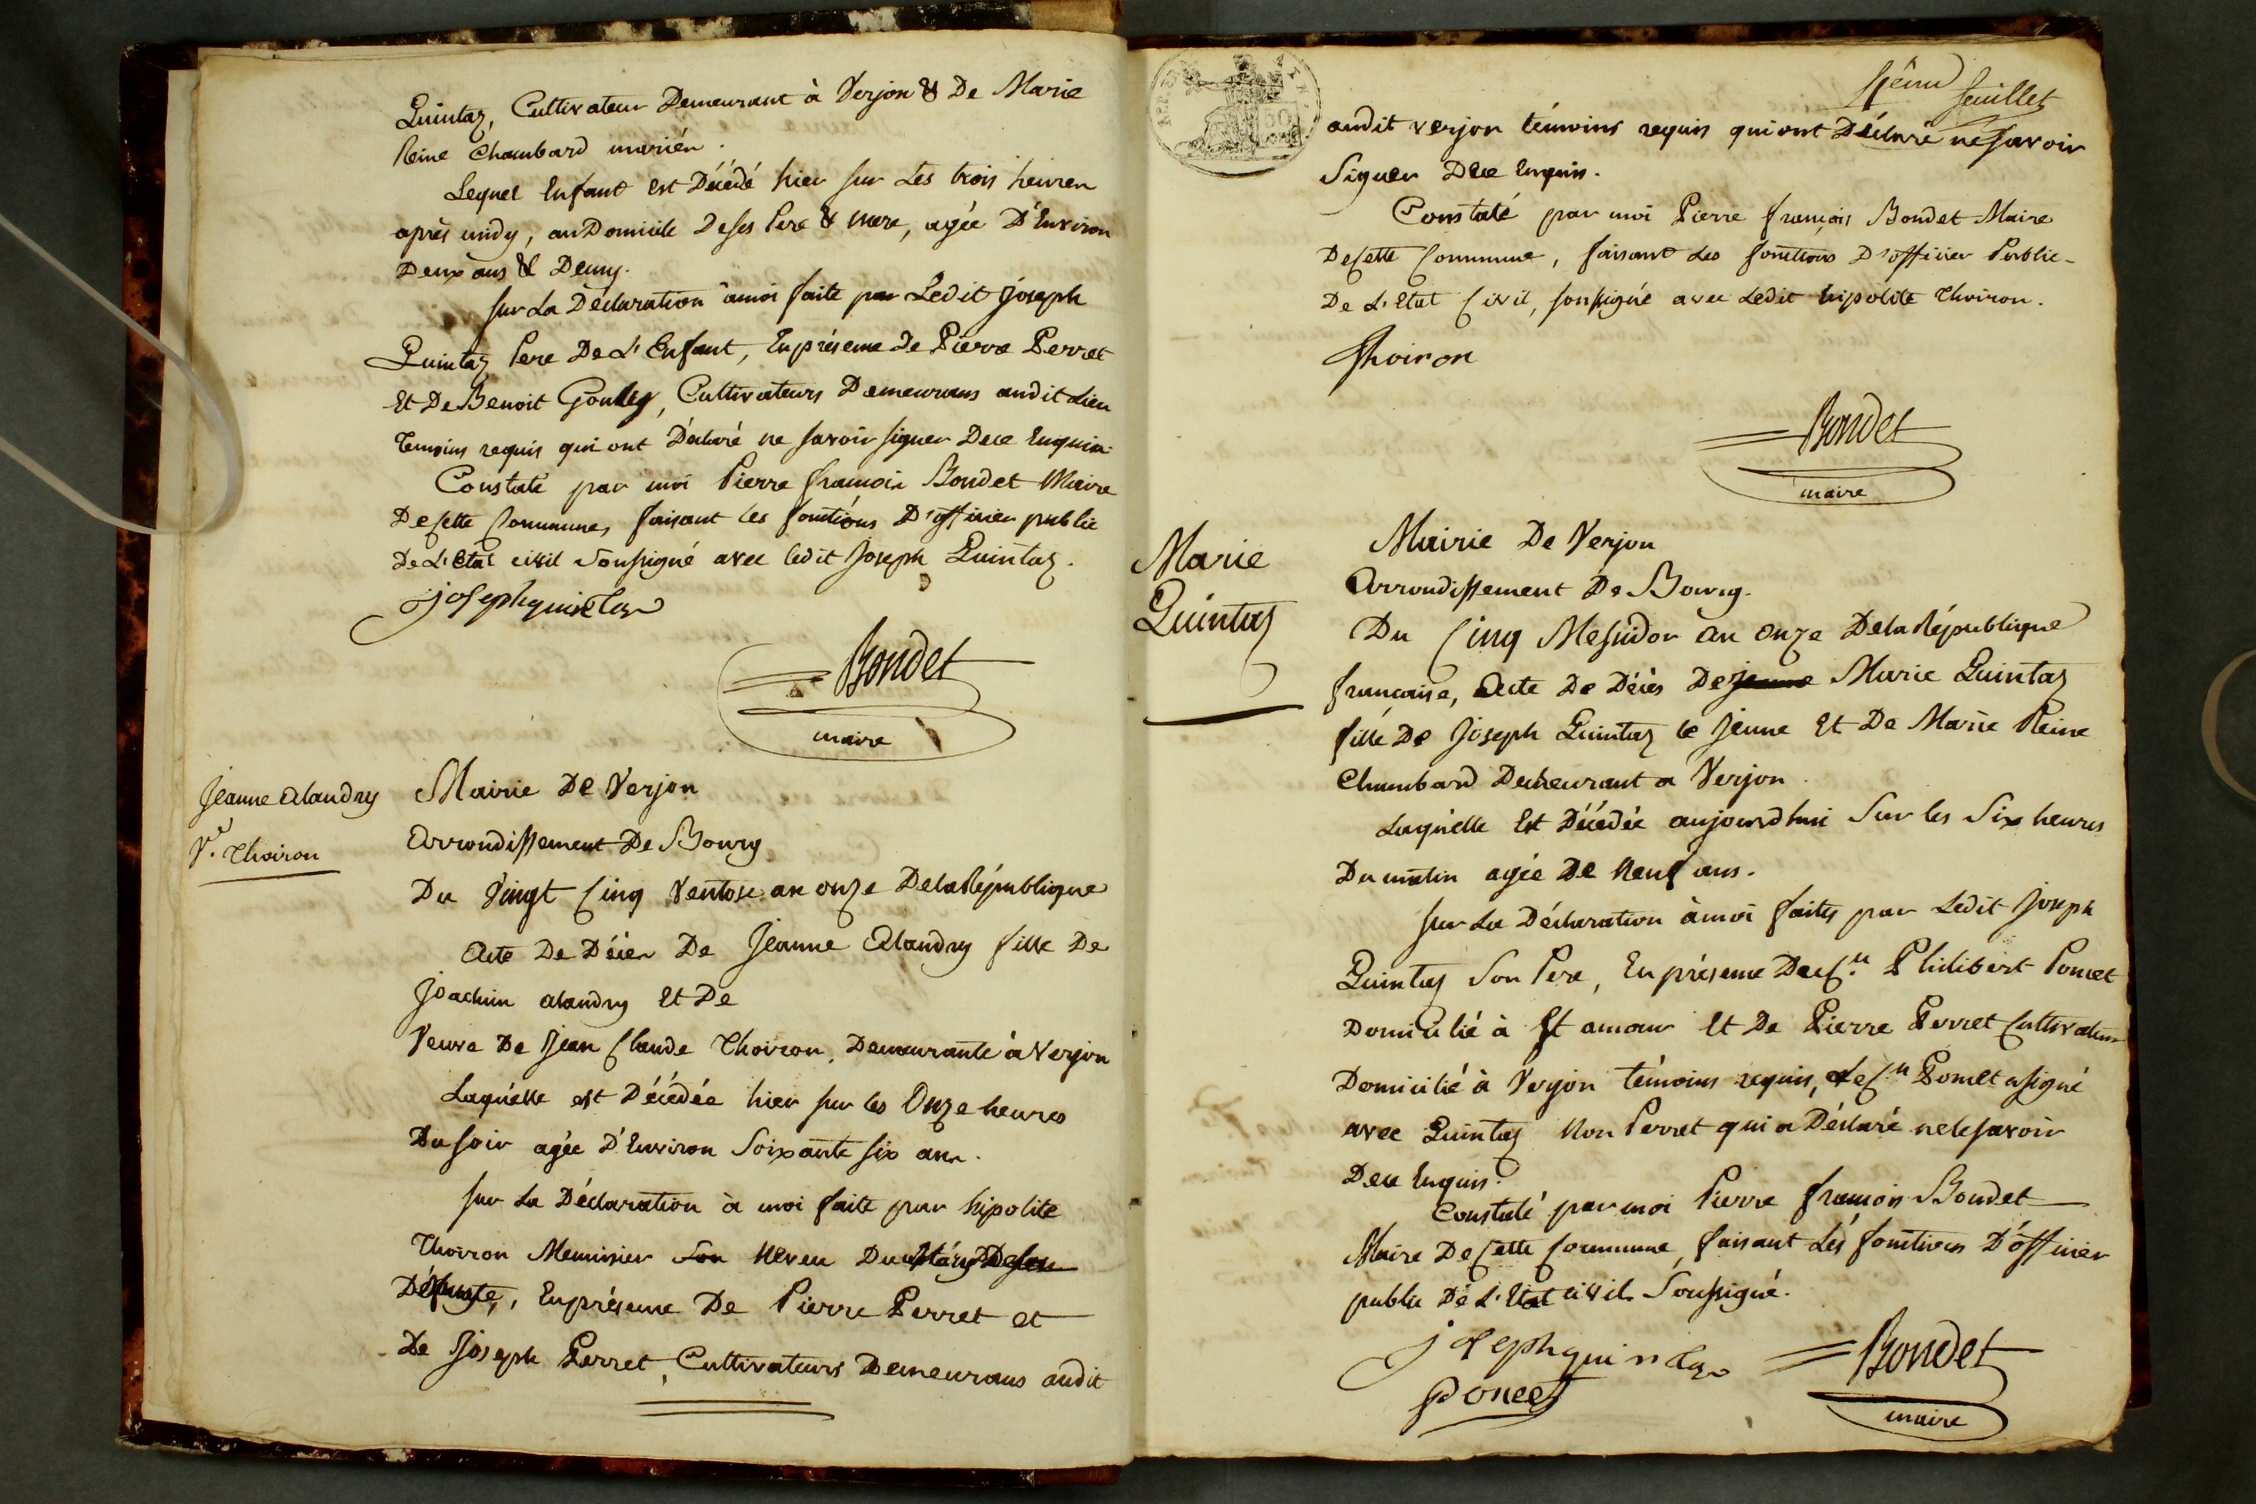 Quintaz, Cultivateur Demeurant à Verjon & De Marie
Reine Chambard mariés.
Lequel Enfant est Décédé hier sur Les trois heures
après midy, au Domicile De ses Pere & mere, agée D'Environ
Deux ans & Demy.
sur La Déclaration à moi faite par Ledit Joseph
Quintaz Pere De L'Enfant, En présence de Pierre Perret
Et De Benoit Gouley, Cultivateurs Demeurans audit Lieu
Temoins requis qui ont Déclaré ne savoir signer De ce Enquis.
Constaté par moi Pierre françois Bondet Maire
De cette Commune, faisant les fonctions D'officier public
De L'Etat civil soussigné avec ledit Joseph Quintaz.
joseph quintaz
Bondet
maire
Jeanne alandry
Ve. Thoiron
Mairie De Verjon
Arrondissement De Bourg
Du Vingt Cinq Ventose an onze De la République
Acte De Décès De Jeanne Alandry fille De
Joachim alandry Et De
Veuve De Jean Claude Thoiron, Demeurante à Verjon
Laquelle est Décédée hier sur les Onze heures
Du soir agée D'Environ Soixante six ans.
sur La Déclaration à moi faite par hipolite
Thoiron Menuisier son neveu Du
Défunte, En présence De Pierre Perret et
De Joseph Perret, Cultivateurs Demeurans audit
feuillet
audit verjon témoins requis qui ont Déclaré ne savoir
Signer De ce Enquis.
Constaté par moi Pierre françois Bondet Maire
De cette Commune, faisant Les fonctions D'officier Public
De L'Etat Civil, soussigné avec Ledit hipolite Thoiron.
Thoiron
Bondet
maire
Marie
Quintaz
Mairie De Verjon
Arrondissement De Bourg.
Du Cinq Messidor an onze De la République
française, Acte De Décès De jeanne Marie Quintaz
fille De Joseph Quintaz le Jeune Et De Marie Reine
Chambard Demeurant a Verjon.
Laquelle Est Décédée aujourd'hui Sur les Six heures
Du matin agée De Neuf ans.
sur La Déclaration à moi faite par Ledit Joseph
Quintaz Son Pere, En présence De Cen. Philibert Poncet
Domicilié à St amour Et De Pierre Perret Cultivateur
Domicilié à Verjon témoins requis, Le Cen Poncet a signé
avec Quintaz Non Perret qui a Déclaré ne le savoir
De ce Enquis.
Constaté par moi Pierre françois Bondet
Maire De Cette Commune, faisant Les fonctions D'officier
public De L'Etat civil Soussigné.
joseph quintaz
Bondet
poncet
maire